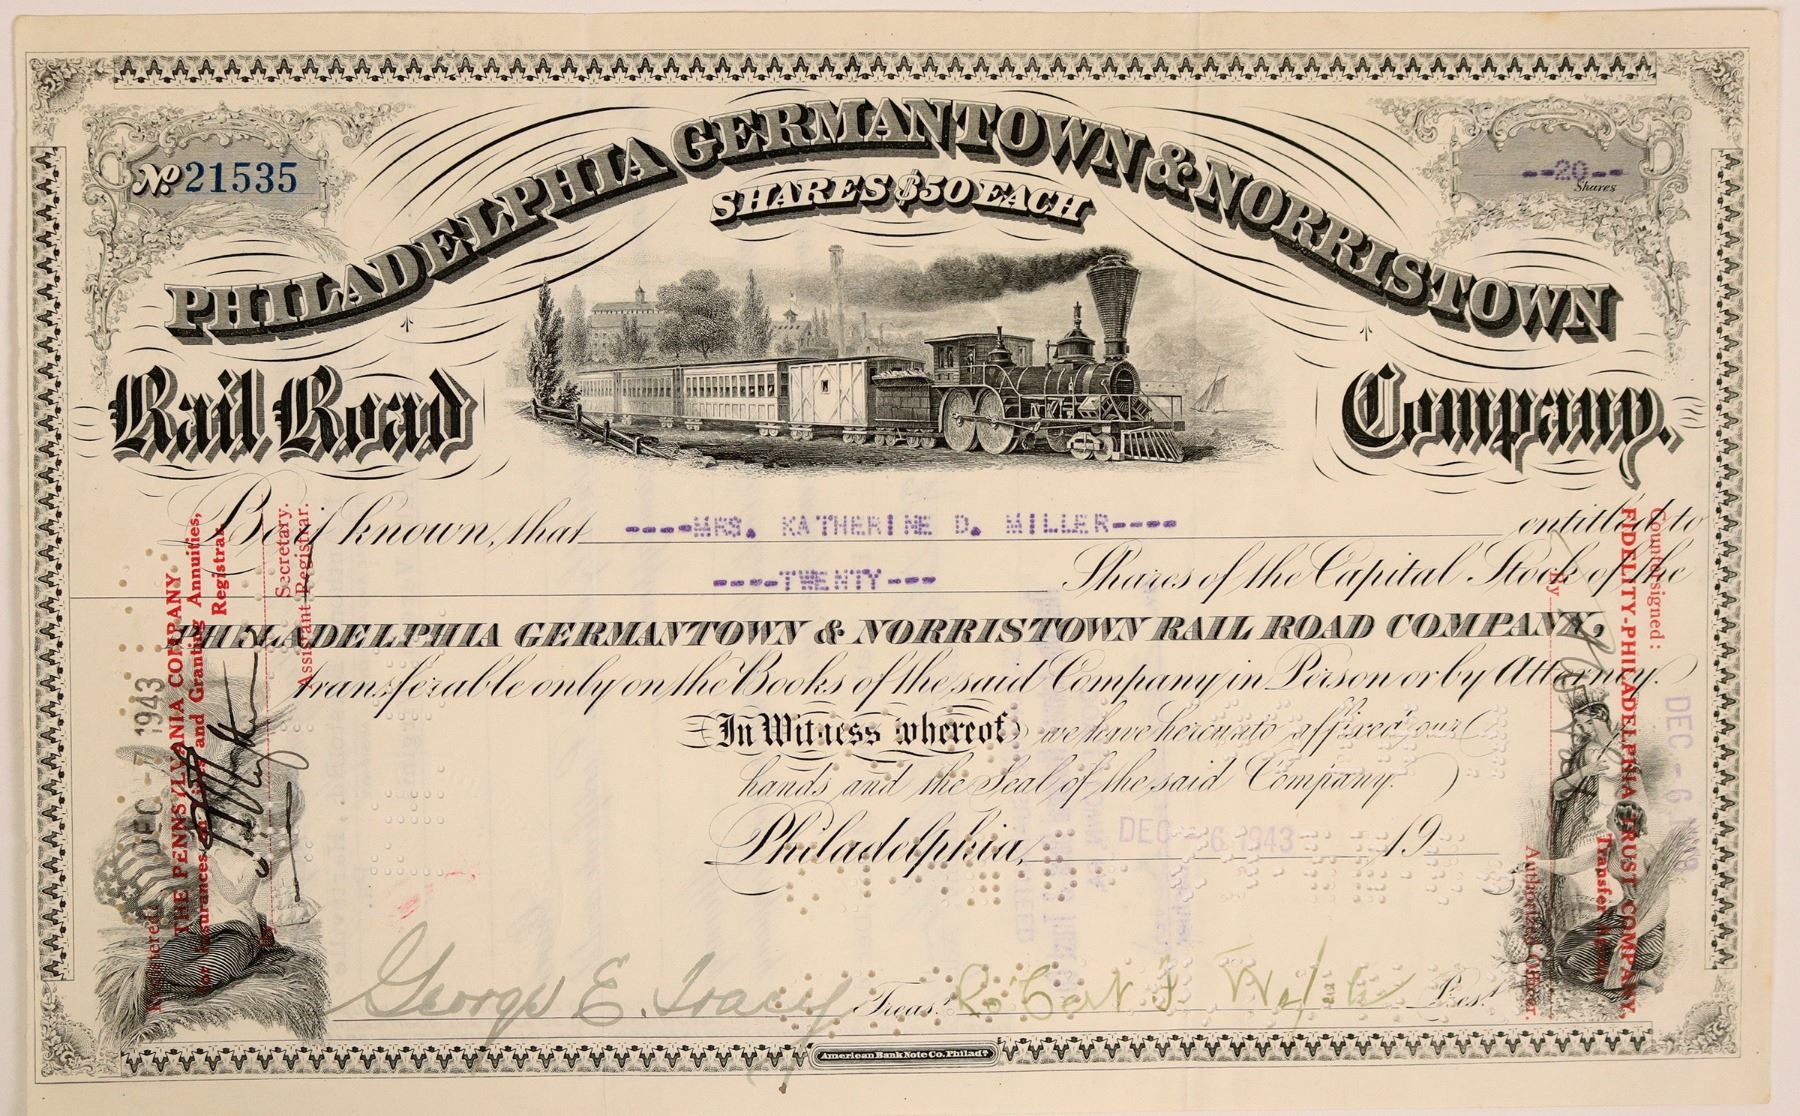 No. 21535
--20--
Shares
PHILADELPHIA GERMANTOWN & NORRISTOWN
SHARES $50 EACH
Rail Road Company.
Be it known, that ----MRS. KATHERINE D. MILLER---- entitled to
----TWENTY--- Shares of the Capital Stock of the
PHILADELPHIA GERMANTOWN & NORRISTOWN RAIL ROAD COMPANY,
transferable only on the Books of the said Company in Person or by Attorney.
In Witness whereof we have hereunto affixed our
hands and the Seal of the said Company.
Philadelphia, DEC - 6 1943 19
George E. Tracy Treas. Pres.
American Bank Note Co. Philada.
Registered: DEC - 7 1943
THE PENNSYLVANIA COMPANY
For Insurances on Lives and Granting Annuities,
Registrar
By
Secretary.
Assistant Registrar.
Countersigned:
FIDELITY-PHILADELPHIA TRUST COMPANY,
Transfer Agent
By
Authorized Officer.
DEC - 6 1943